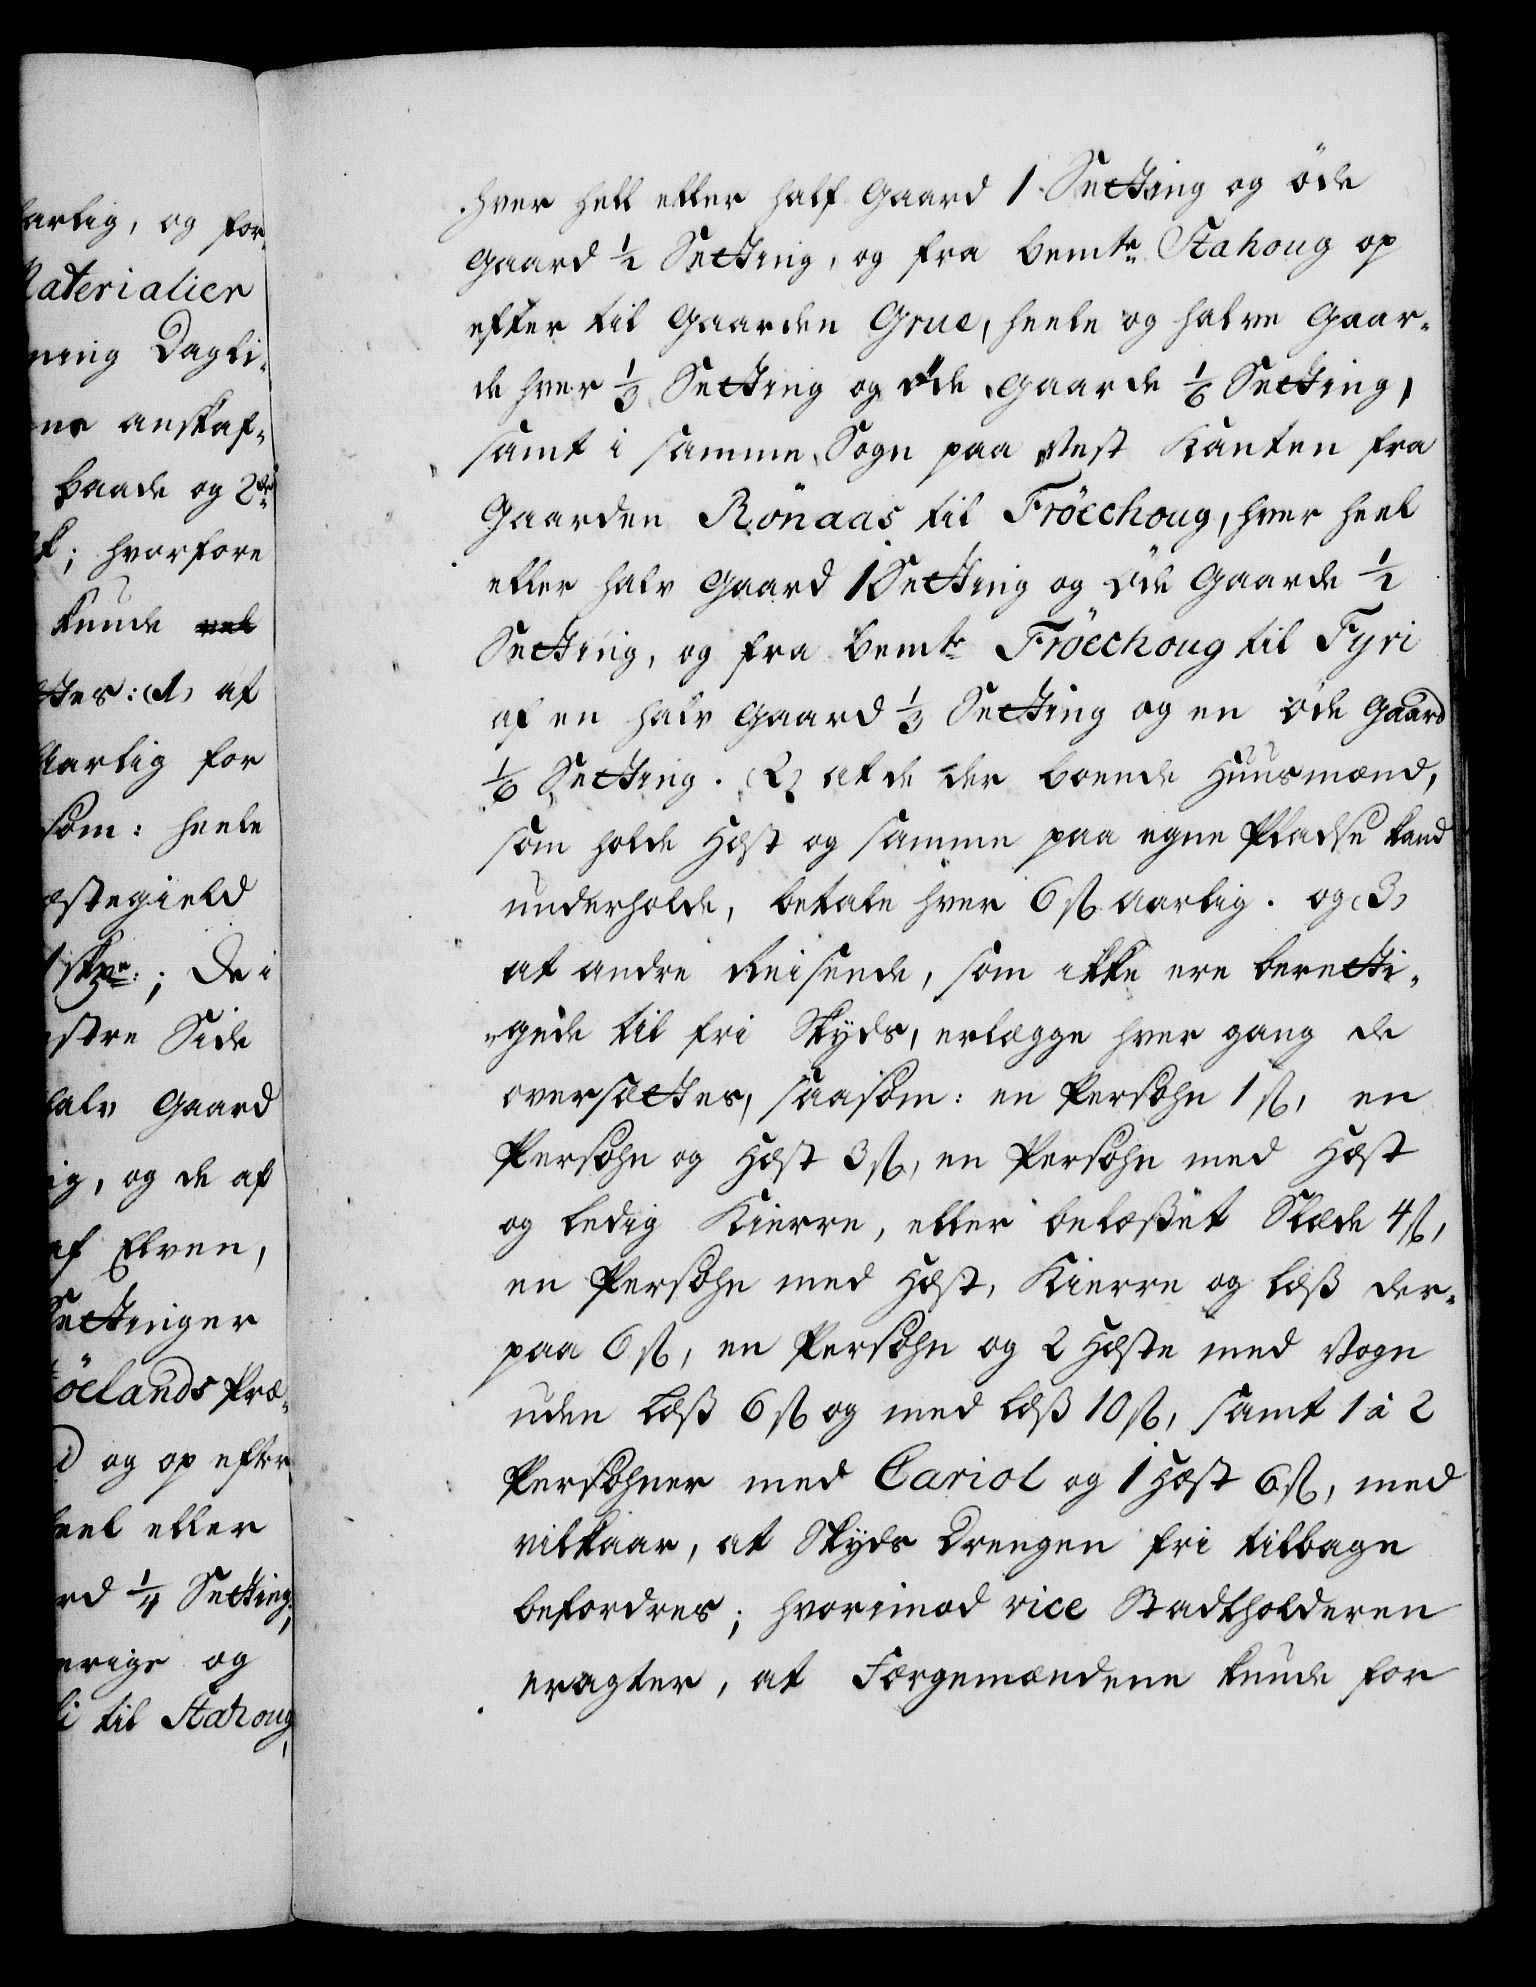 aarlig, og for-
Materialier
ning Dagli-
ne anskaf-
baade og 2de
hvorfore
kunde vel
ttes: (1) af
aarlig for
som: heele
æstegield
De i
estre Side
halv Gaard
ig, og de af
af Elven,
Settinger
öelands Præ-
og op efter
heel eller
rd 1/4 Setting;
erige og
li til Stahoug,
hver hell eller half Gaard 1 Setting og öde
Gaard 1/2 Setting, og fra bemte Stahoug op
efter til Gaarden Grue, heele og halve Gaar-
de hver 1/3 Setting og öde Gaarde 1/6 Setting,
samt i samme Sogn paa Vest Kanten fra
Gaarden Rönaas til Fröechoug, hver heel
eller halv Gaard 1 Setting og öde Gaarde 1/2
Setting, og fra bemte Fröechoug til Fyri
af en halv Gaard 1/3 Setting og en öde Gaard
1/6 Setting. (2) af de der boende Huusmænd,
som holde Hæst og samme paa egne Pladse kand
underholde, betale hver 6 ß aarlig. og (3)
at andre Reisende, som ikke ere beretti-
gede til fri Skyds, erlægge hver gang de
oversættes, saasom: en Persohn 1 ß, en
Persohn og Hæst 3 ß, en Persohn med Hæst
og ledig Kierre, eller belæsset Slæde 4 ß,
en Persohn med Hæst, Kierre og læß der-
paa 6 ß, en Persohn og 2 Hæste med Vogn
uden læß 6 ß og med læß 10 ß, samt 1 à 2
Persohner med Cariol og 1 Hæst 6 ß, med
vilkaar, at Skyds Drengen fri tilbage
befordres; hvorimod vice Stadtholderen
eragter, at Færgemændene kunde for